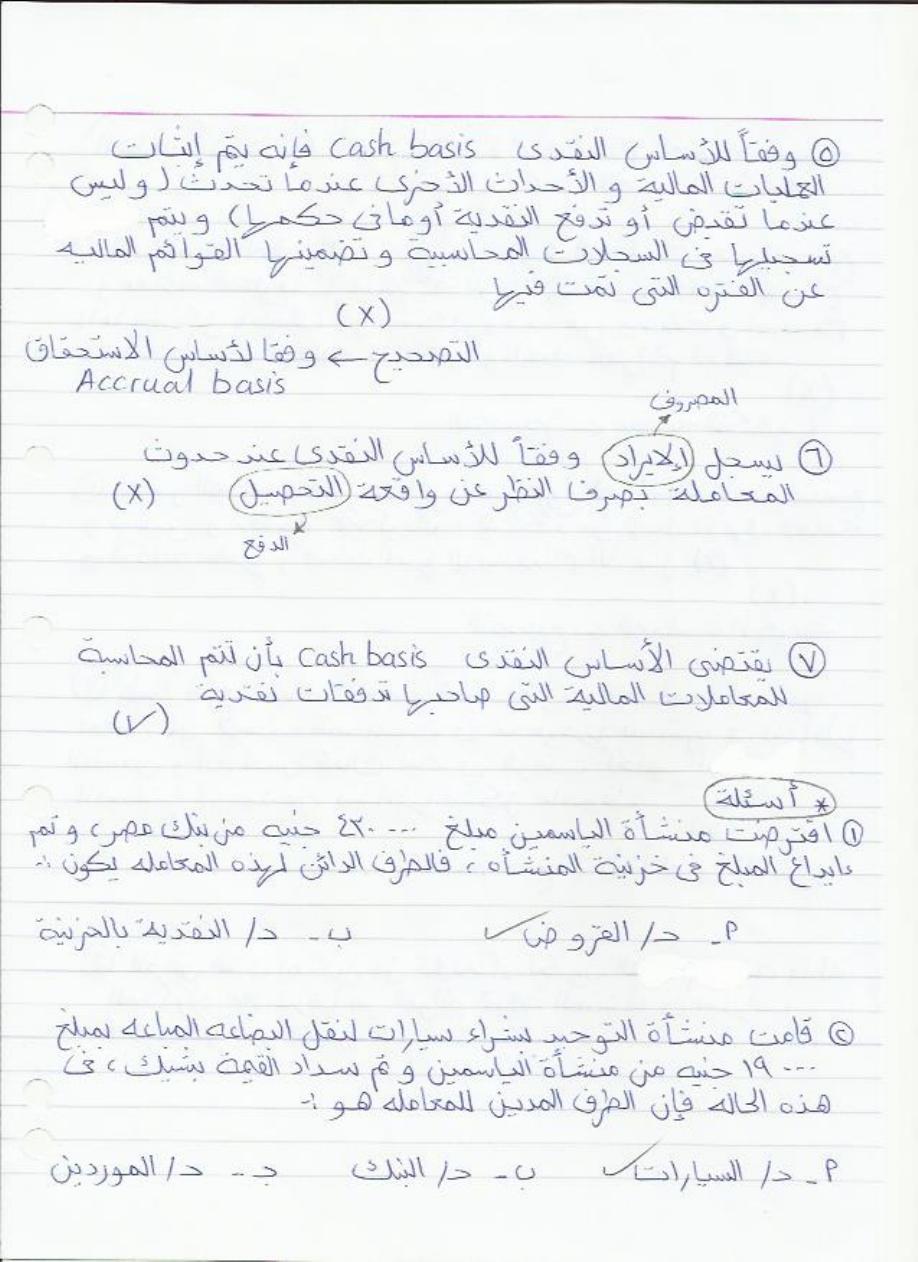 ٥ وفقاً للأساس النقدى Cash basis فإنه يتم إثبات
العمليات المالية و الأحداث الأخرى عندما تحدث (وليس
عندما تقبض أو تدفع النقدية أو ما فى حكمها) ويتم
تسجيلها فى السجلات المحاسبية وتضمينها القوائم الماليه
عن الفتره التى تمت فيها
(X)
التصحيح ← وفقا لأساس الاستحقاق
Accrual basis
المصروف
٦ يسجل الإيراد وفقاً للأساس النقدى عند حدوث
المعاملة بصرف النظر عن واقعة التحصيل (X)
الدفع
٧ يقتضى الأساس النقدى Cash basis بأن تتم المحاسبة
للمعاملات المالية التى صاحبها تدفقات نقدية
(✓)
* أسئلة
١ اقترضت منشأة الياسمين مبلغ ٤٢٠٠٠٠ جنيه من بنك مصر، و تم
ايداع المبلغ فى خزينة المنشأه، فالطرف الدائن لهذه المعامله يكون :-
أ- د/ القروض ✓ ب- د/ النقدية بالخزينة
٢ قامت منشأة التوحيد بشراء سيارات لنقل البضاعه المباعه بمبلغ
١٩٠٠٠٠ جنيه من منشأة الياسمين و تم سداد القيمة بشيك، فى
هذه الحاله فإن الطرف المدين للمعامله هو :-
أ- د/ السيارات ✓ ب- د/ البنك ج- د/ الموردين